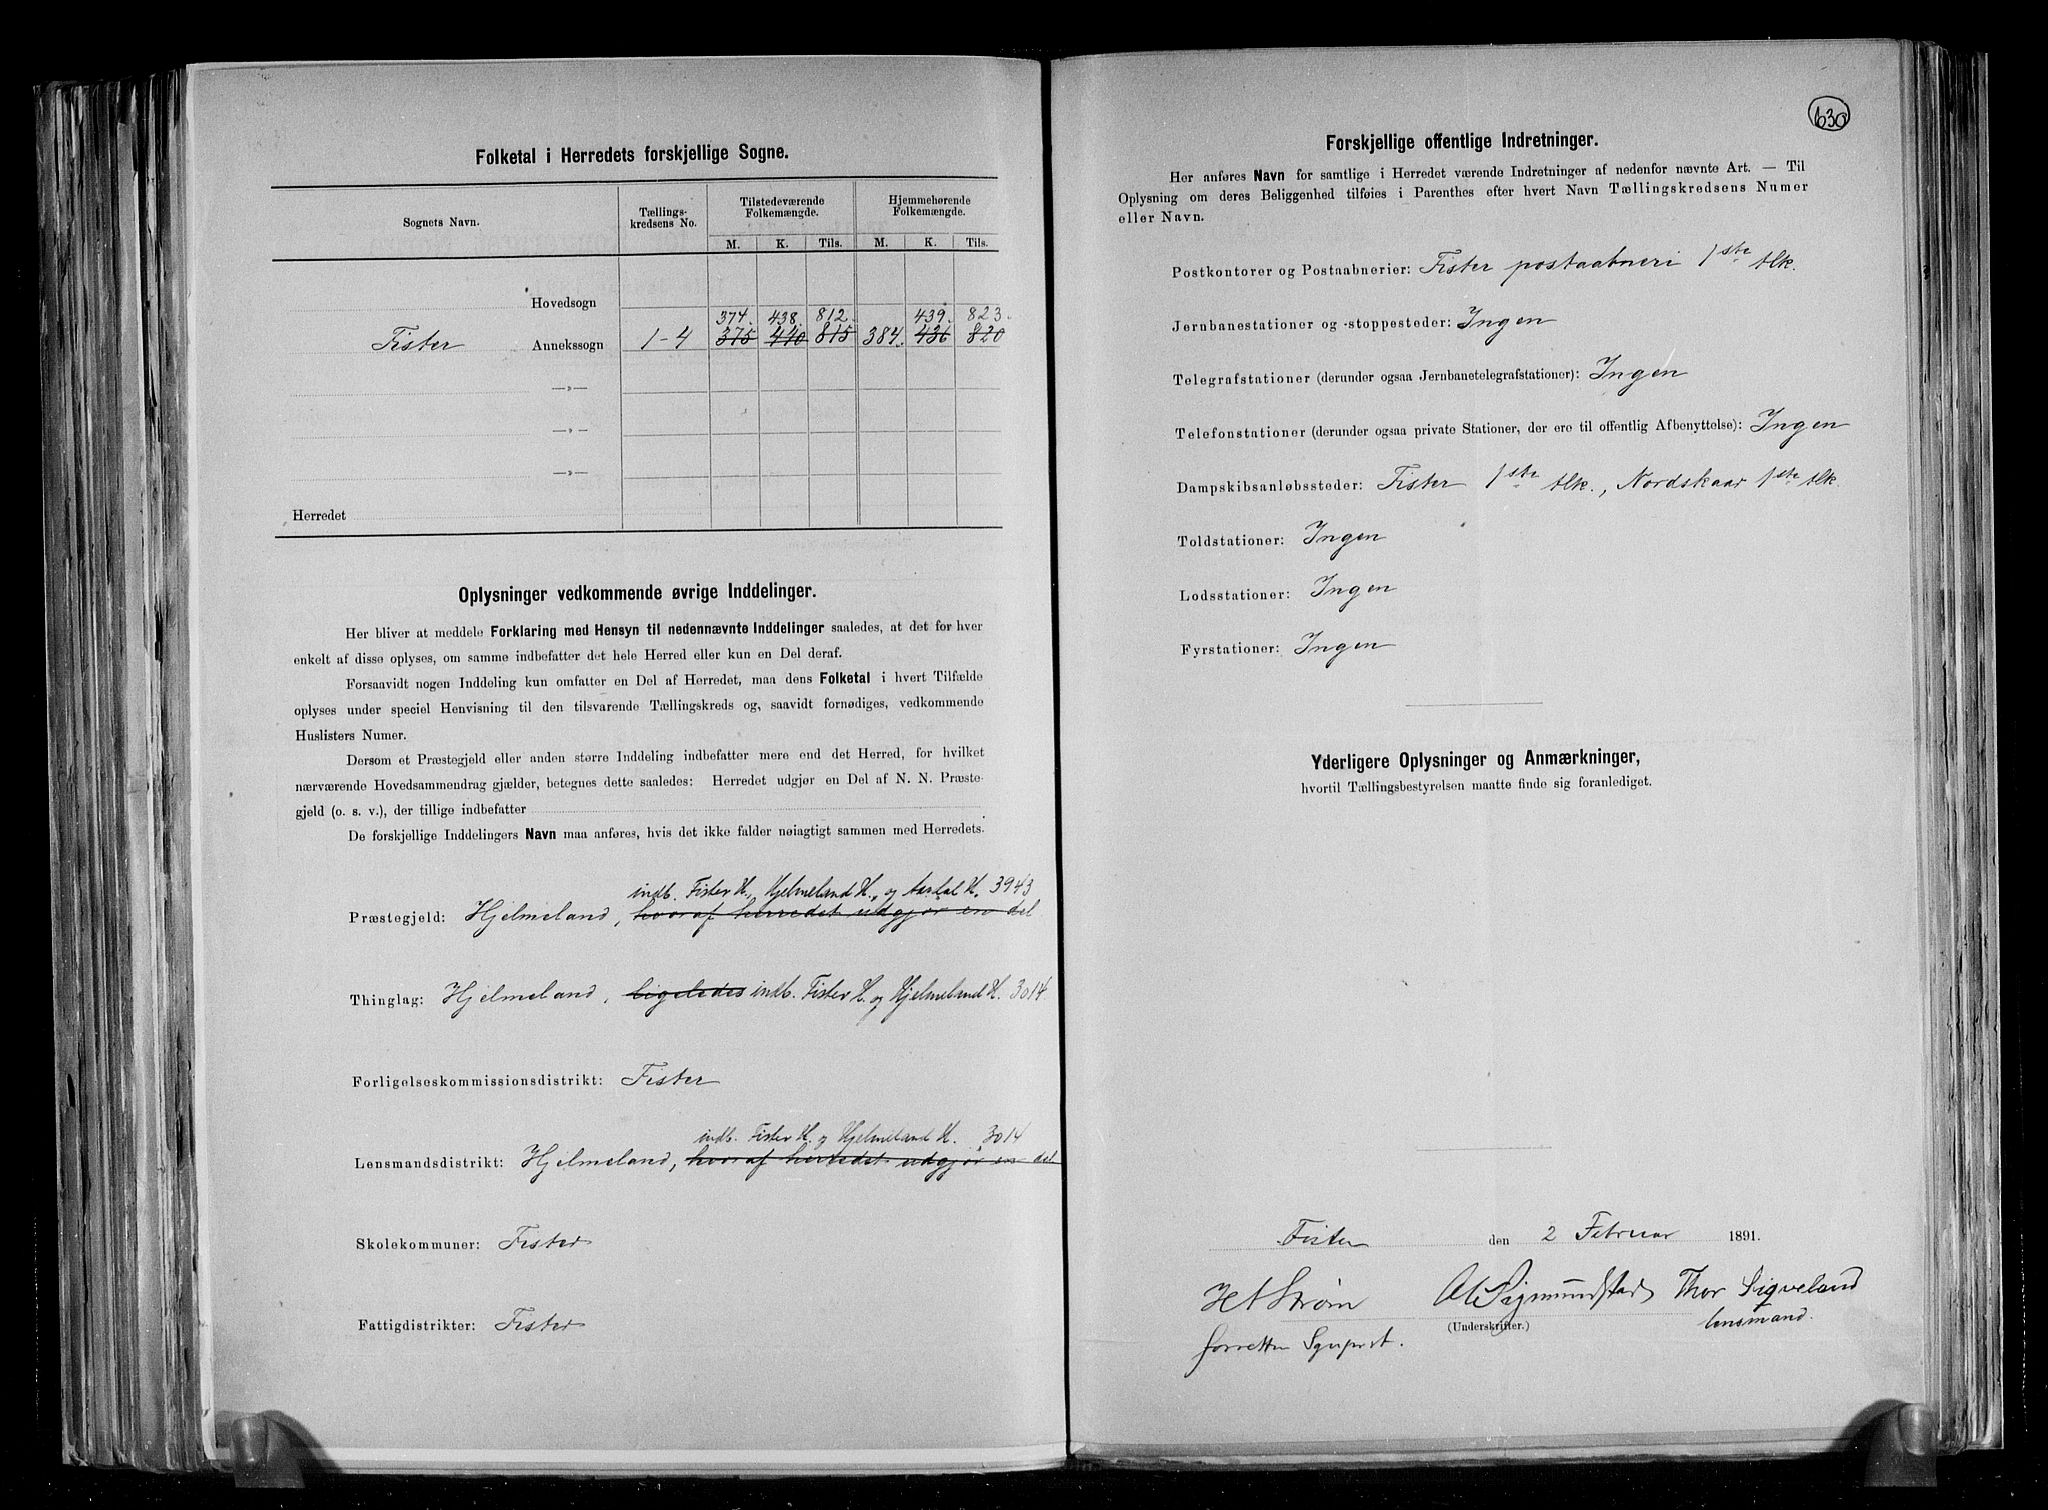 Folketal i Herredets forskjellige Sogne.
Sognets Navn.
Tællings-
kredsens No.
Tilstedeværende
Folkemængde.
Hjemmehørende
Folkemængde.
M. K. Tils. M. K. Tils.
Hovedsogn
374. 438. 812. 439. 823.
Fister Annekssogn 1-4 375 440 815 384. 436 820
—»—
—»—
—»—
Herredet
Oplysninger vedkommende øvrige Inddelinger.
Her bliver at meddele Forklaring med Hensyn til nedennævnte Inddelinger saaledes, at det for hver
enkelt af disse oplyses, om samme indbefatter det hele Herred eller kun en Del deraf.
Forsaavidt nogen Inddeling kun omfatter en Del af Herredet, maa dens Folketal i hvert Tilfælde
oplyses under speciel Henvisning til den tilsvarende Tællingskreds og, saavidt fornødiges, vedkommende
Huslisters Numer.
Dersom et Præstegjeld eller anden større Inddeling indbefatter mere end det Herred, for hvilket
nærværende Hovedsammendrag gjælder, betegnes dette saaledes: Herredet udgjør en Del af N. N. Præste-
gjeld (o. s. v.), der tillige indbefatter
De forskjellige Inddelingers Navn maa anføres, hvis det ikke falder nøiagtigt sammen med Herredets.
indb. Fister H., Hjelmeland H., og Aardal H. 3943
Præstegjeld: Hjelmeland, hvoraf herredet udgjør en del
Thinglag: Hjelmeland, ligeledes indb. Fister H. og Hjelmeland H. 3014.
Forligelseskommissionsdistrikt: Fister
indb. Fister H. og Hjelmeland H. 3014
Lensmandsdistrikt: Hjelmeland, hvoraf herredet udgjør en del
Skolekommuner: Fister
Fattigdistrikter: Fister
630
Forskjellige offentlige Indretninger.
Her anføres Navn for samtlige i Herredet værende Indretninger af nedenfor nævnte Art. — Til
Oplysning om deres Beliggenhed tilføies i Parenthes efter hvert Navn Tællingskredsens Numer
eller Navn.
Postkontorer og Postaabnerier: Fister postaabneri 1ste tlk.
Jernbanestationer og -stoppesteder: Ingen
Telegrafstationer (derunder ogsaa Jernbanetelegrafstationer): Ingen
Telefonstationer (derunder ogsaa private Stationer, der ere til offentlig Afbenyttelse): Ingen
Dampskibsanløbssteder: Fister 1ste tlk., Nordskaar 1ste tlk.
Toldstationer: Ingen
Lodsstationer: Ingen
Fyrstationer: Ingen
Yderligere Oplysninger og Anmærkninger,
hvortil Tællingsbestyrelsen maatte finde sig foranlediget.
Fister den 2 Februar 1891.
Strøm Sigmundstad Thor Sigveland
(Underskrifter.) lensmand.